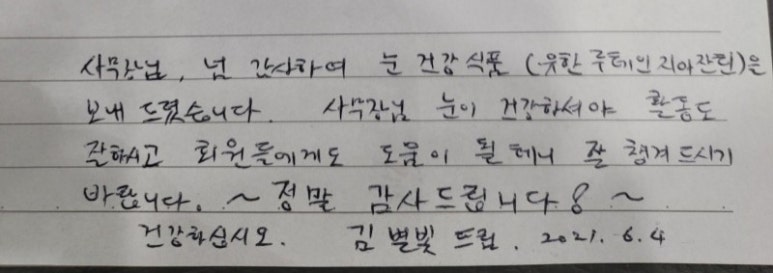 사무장님, 넘 감사하여 눈 건강 식품 (유한 루테인 지아잔틴)은
보내 드렸습니다. 사무장님 눈이 건강하셔야 활동도
잘하시고 회원들에게도 도움이 될 테니 잘 챙겨 드시기
바랍니다. ~ 정말 감사드립니다! ~
건강하십시오. 김 별빛 드림. 2021. 6. 4